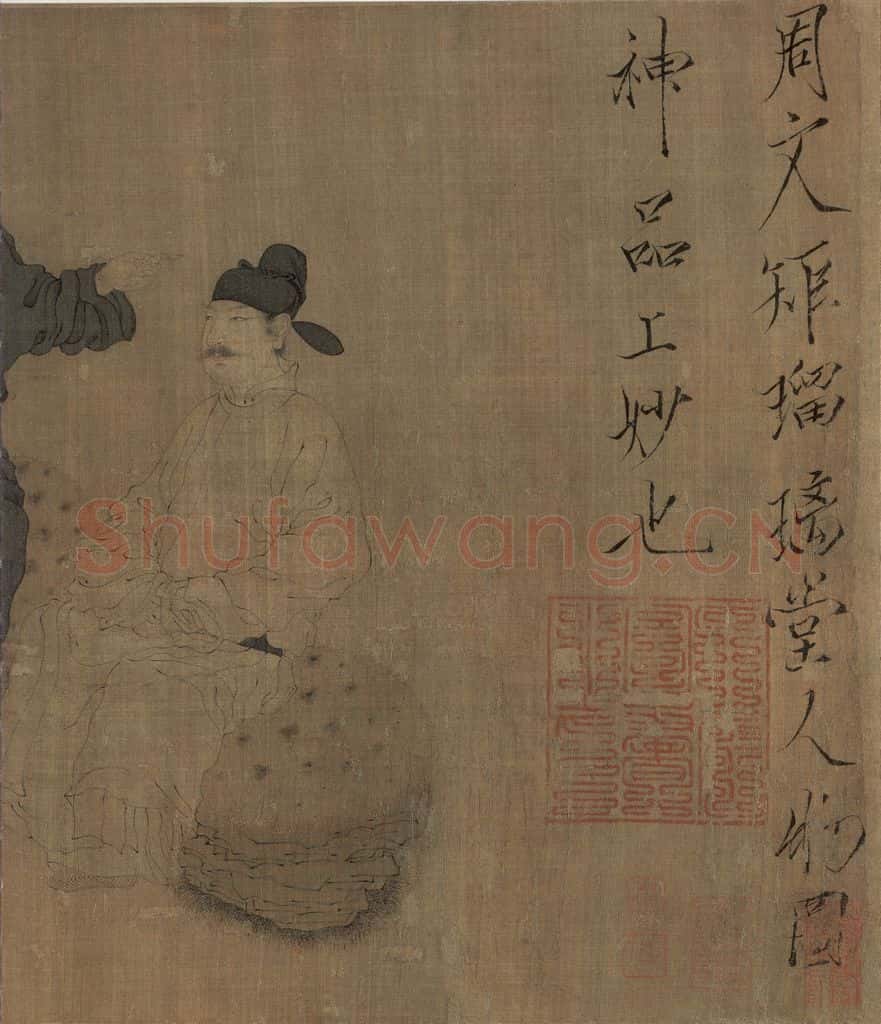 周文矩瑠璃堂人物圖
神品上妙也
Shufawang.CN